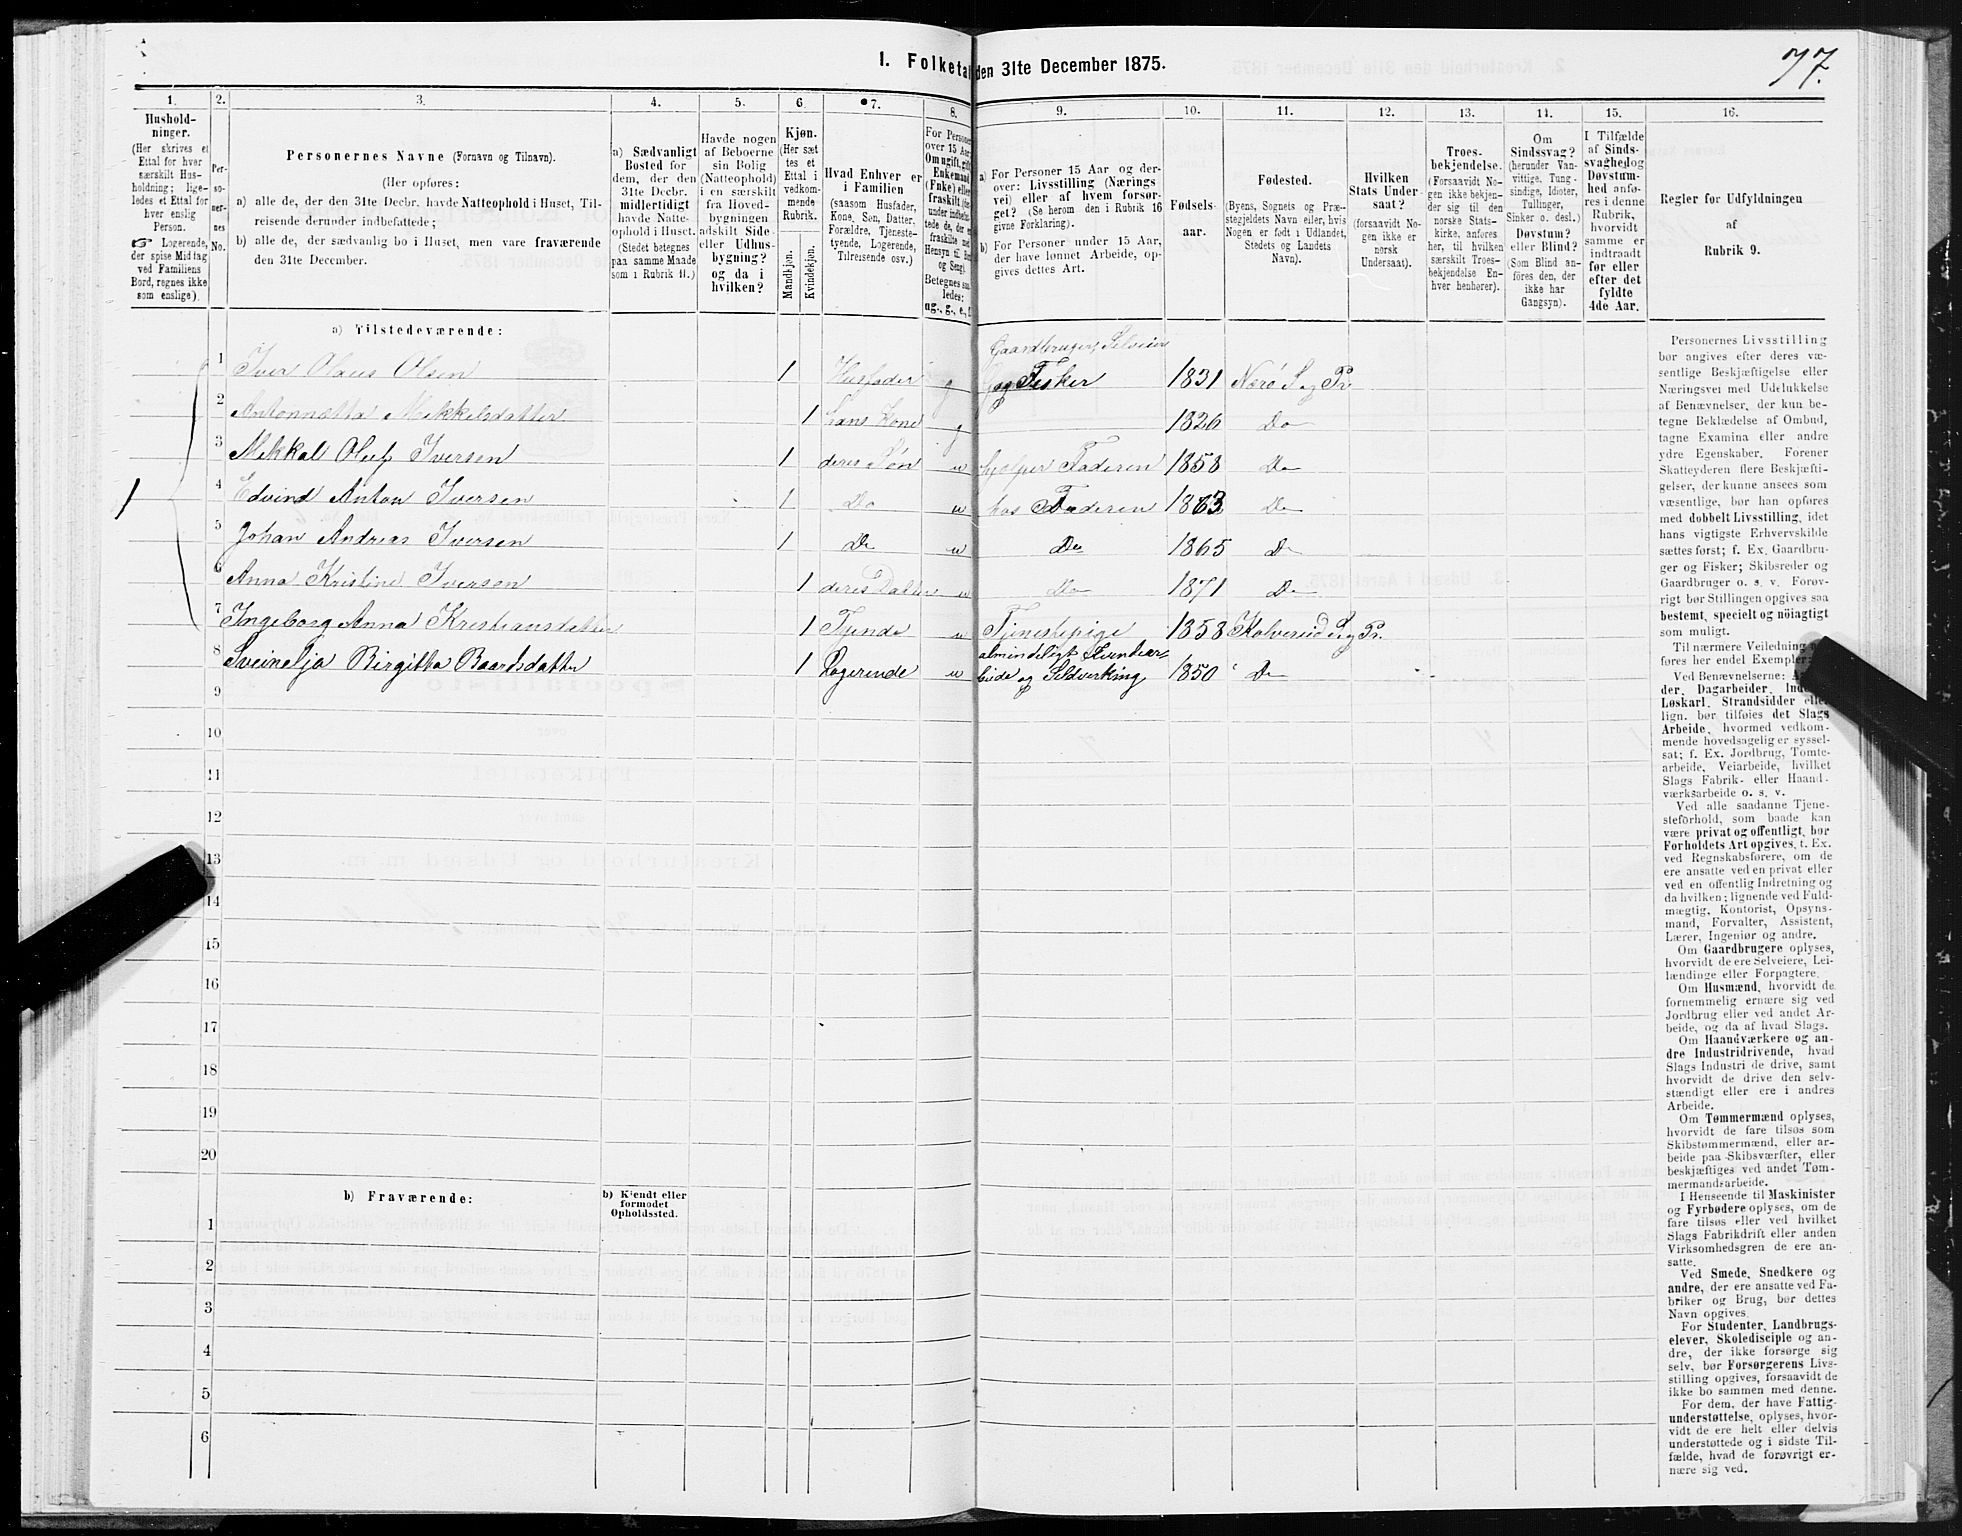 77.
1. Folketal den 31te December 1875.
1.
2.
3.
4.
5.
6.
7.
8.
9.
10.
11.
12.
13.
14.
15.
16.
Hushold-
ninger.
(Her skrives et
Ettal for hver
særskilt Hus-
holdning; lige-
ledes et Ettal for
hver enslig
Person.
☞ Logerende,
der spise Middag
ved Familiens
Bord, regnes ikke
som enslige).
Per-
so-
ner-
nes
No.
Personernes Navne (Fornavn og Tilnavn).
(Her opføres:
a) alle de, der den 31te Decbr. havde Natteophold i Huset, Til-
reisende derunder indbefattede;
b) alle de, der sædvanlig bo i Huset, men vare fraværende
den 31te December.
a) Sædvanligt
Bosted for
dem, der den
31te Decbr.
midlertidigt
havde Natte-
ophold i Huset.
(Stedet betegnes
paa samme Maade
som i Rubrik 11.)
Havde nogen
af Beboerne
sin Bolig
(Natteophold)
i en særskilt
fra Hoved-
bygningen
adskilt Side-
eller Udhus-
bygning?
og da i
hvilken?
Kjøn.
(Her sæt-
tes et
Ettal i
vedkom-
mende
Rubrik.
Mandkjøn.
Kvindekjøn.
Hvad Enhver er
i Familien
(saasom Husfader,
Kone, Søn, Datter,
Forældre, Tjeneste-
tyende, Logerende,
Tilreisende osv.)
For Personer
over 15 Aar:
Om ugift, gift,
Enkemand
(Enke) eller
fraskilt
a) For Personer 15 Aar og der-
over: Livsstilling (Nærings-
vei) eller af hvem forsør-
get? (Se herom den i Rubrik 16
givne Forklaring).
b) For Personer under 15 Aar,
der have lønnet Arbeide, op-
gives dettes Art.
Fødsels-
aar.
Fødested.
(Byens, Sognets og Præ-
stegjeldets Navn eller, hvis
Nogen er født i Udlandet,
Stedets og Landets
Navn).
Hvilken
Stats Under-
saat?
(forsaavidt No-
gen ikke er
norsk
Undersaat).
Troes-
bekjendelse.
(Forsaavidt No-
gen ikke bekjen-
der sig til den
norske Stats-
kirke, anføres
her, til hvilken
særskilt Troes-
bekjendelse En-
hver henhører).
Om
Sindssvag?
(herunder Van-
vittige, Tung-
sindige, Idioter,
Tullinger,
Sinker o. desl.)
Døvstum?
eller Blind?
(Som Blind an-
føres den, der
ikke har
Gangsyn).
I Tilfælde
af Sinds-
svaghed og
Døvstum-
hed anfø-
res i denne
Rubrik,
hvorvidt
samme er
indtraadt
før eller
efter det
fyldte
4de Aar.
Regler for Udfyldningen
af
Rubrik 9.
a) Tilstedeværende:
Gaardbruger, Selveier
1 Iver Olaus Olsen 1 Husfader g og Fisker 1831 Nærø S og Pr
2 Antonnetta Mekkelsdatter 1 hans Kone g 1826 Do
3 Mekkal Oluf Iversen 1 deres Søn u hjælper Faderen 1858 Do
1
4 Edvind Anton Iversen 1 Do u hos Faderen 1863 Do
5 Johan Andreas Iversen 1 Do u Do 1865 Do
6 Anna Kristine Iversen 1 deres Datter u Do 1871 Do
7 Ingeborg Anna Kristiansdatter 1 Tjende u Tjenestepige 1858 Kolvereid S og Pr.
8 Sveinelja Birgitta Baardsdatter 1 Logerende u almindeligt
og Sildvirking 1850 Do
9
10
11
12
13
14
15
16
17
18
19
20
b) Fraværende:
b) Kjendt eller
formodet
Opholdssted.
1
2
3
4
5
6
Personernes Livsstilling
bør angives efter deres væ-
sentlige Beskjæftigelse eller
Næringsvei med Udelukkelse
af Benævnelser, der kun be-
tegne Beklædelse af Ombud,
tagne Examina eller andre
ydre Egenskaber. Forener
Skatteyderen flere Beskjæfti-
gelser, der kunne ansees som
væsentlige, bør han opføres
med dobbelt Livsstilling, idet
hans vigtigste Erhvervskilde
sættes først; f. Ex. Gaardbru-
ger og Fisker; Skibsreder og
Gaardbruger o. s. v. Forøv-
rigt bør Stillingen opgives saa
bestemt, specielt og nöiagtigt
som muligt.
Til nærmere Veiledning
føres her endel Exempler:
Ved Benævnelserne:
der, Dagarbeider,
Løskarl, Strandsidder eller
lign. bør tilføies det Slags
Arbeide, hvormed vedkom-
mende hovedsagelig er syssel-
sat; f. Ex. Jordbrug, Tomte-
arbeide, Veiarbeide, hvilket
Slags Fabrik- eller Haand-
værksarbeide o. s. v.
Ved alle saadanne Tjene-
steforhold, som baade kan
være privat og offentligt, bør
Forholdets Art opgives, f. Ex.
ved Regnskabsførere, om de
ere ansatte ved en privat eller
ved en offentlig Indretning og
da hvilken; lignende ved Fuld-
mægtig, Kontorist, Opsyns-
mand, Forvalter, Assistent,
Lærer, Ingeniør og andre.
Om Gaardbrugere oplyses,
hvorvidt de ere Selveiere, Lei-
lændinge eller Forpagtere.
Om Husmænd, hvorvidt de
fornemmelig ernære sig ved
Jordbrug eller ved andet Ar-
beide, og da af hvad Slags.
Om Haandværkere og an-
dre Industridrivende, hvad
Slags Industri de drive, samt
hvorvidt de drive den selv-
stændigt eller ere i andres
Arbeide.
Om Tømmermænd oplyses,
hvorvidt de fare tilsøs som
Skibstømmermænd, eller ar-
beide paa Skibsværfter, eller
beskjæftiges ved andet Tøm-
mermandsarbeide.
I Henseende til Maskinister
og Fyrbødere oplyses, om de
fare tilsøs eller ved hvilket
Slags Fabrikdrift eller anden
Virksomhedsgren de ere an-
satte.
Ved Smede, Snedkere og
andre, der ere ansatte ved Fa-
briker og Brug, bør dettes
Navn opgives.
For Studenter, Landbrugs-
elever, Skoledisciple og an-
dre, der ikke forsørge sig
selv, bør Forsørgerens Livs-
stilling opgives, forsaavidt de
ikke bo sammen med denne.
For dem, der have Fattig-
understøttelse, oplyses, hvor-
vidt de ere helt eller delvis
understøttede og i sidste Til-
fælde, hvad de forøvrigt er-
nære sig ved.